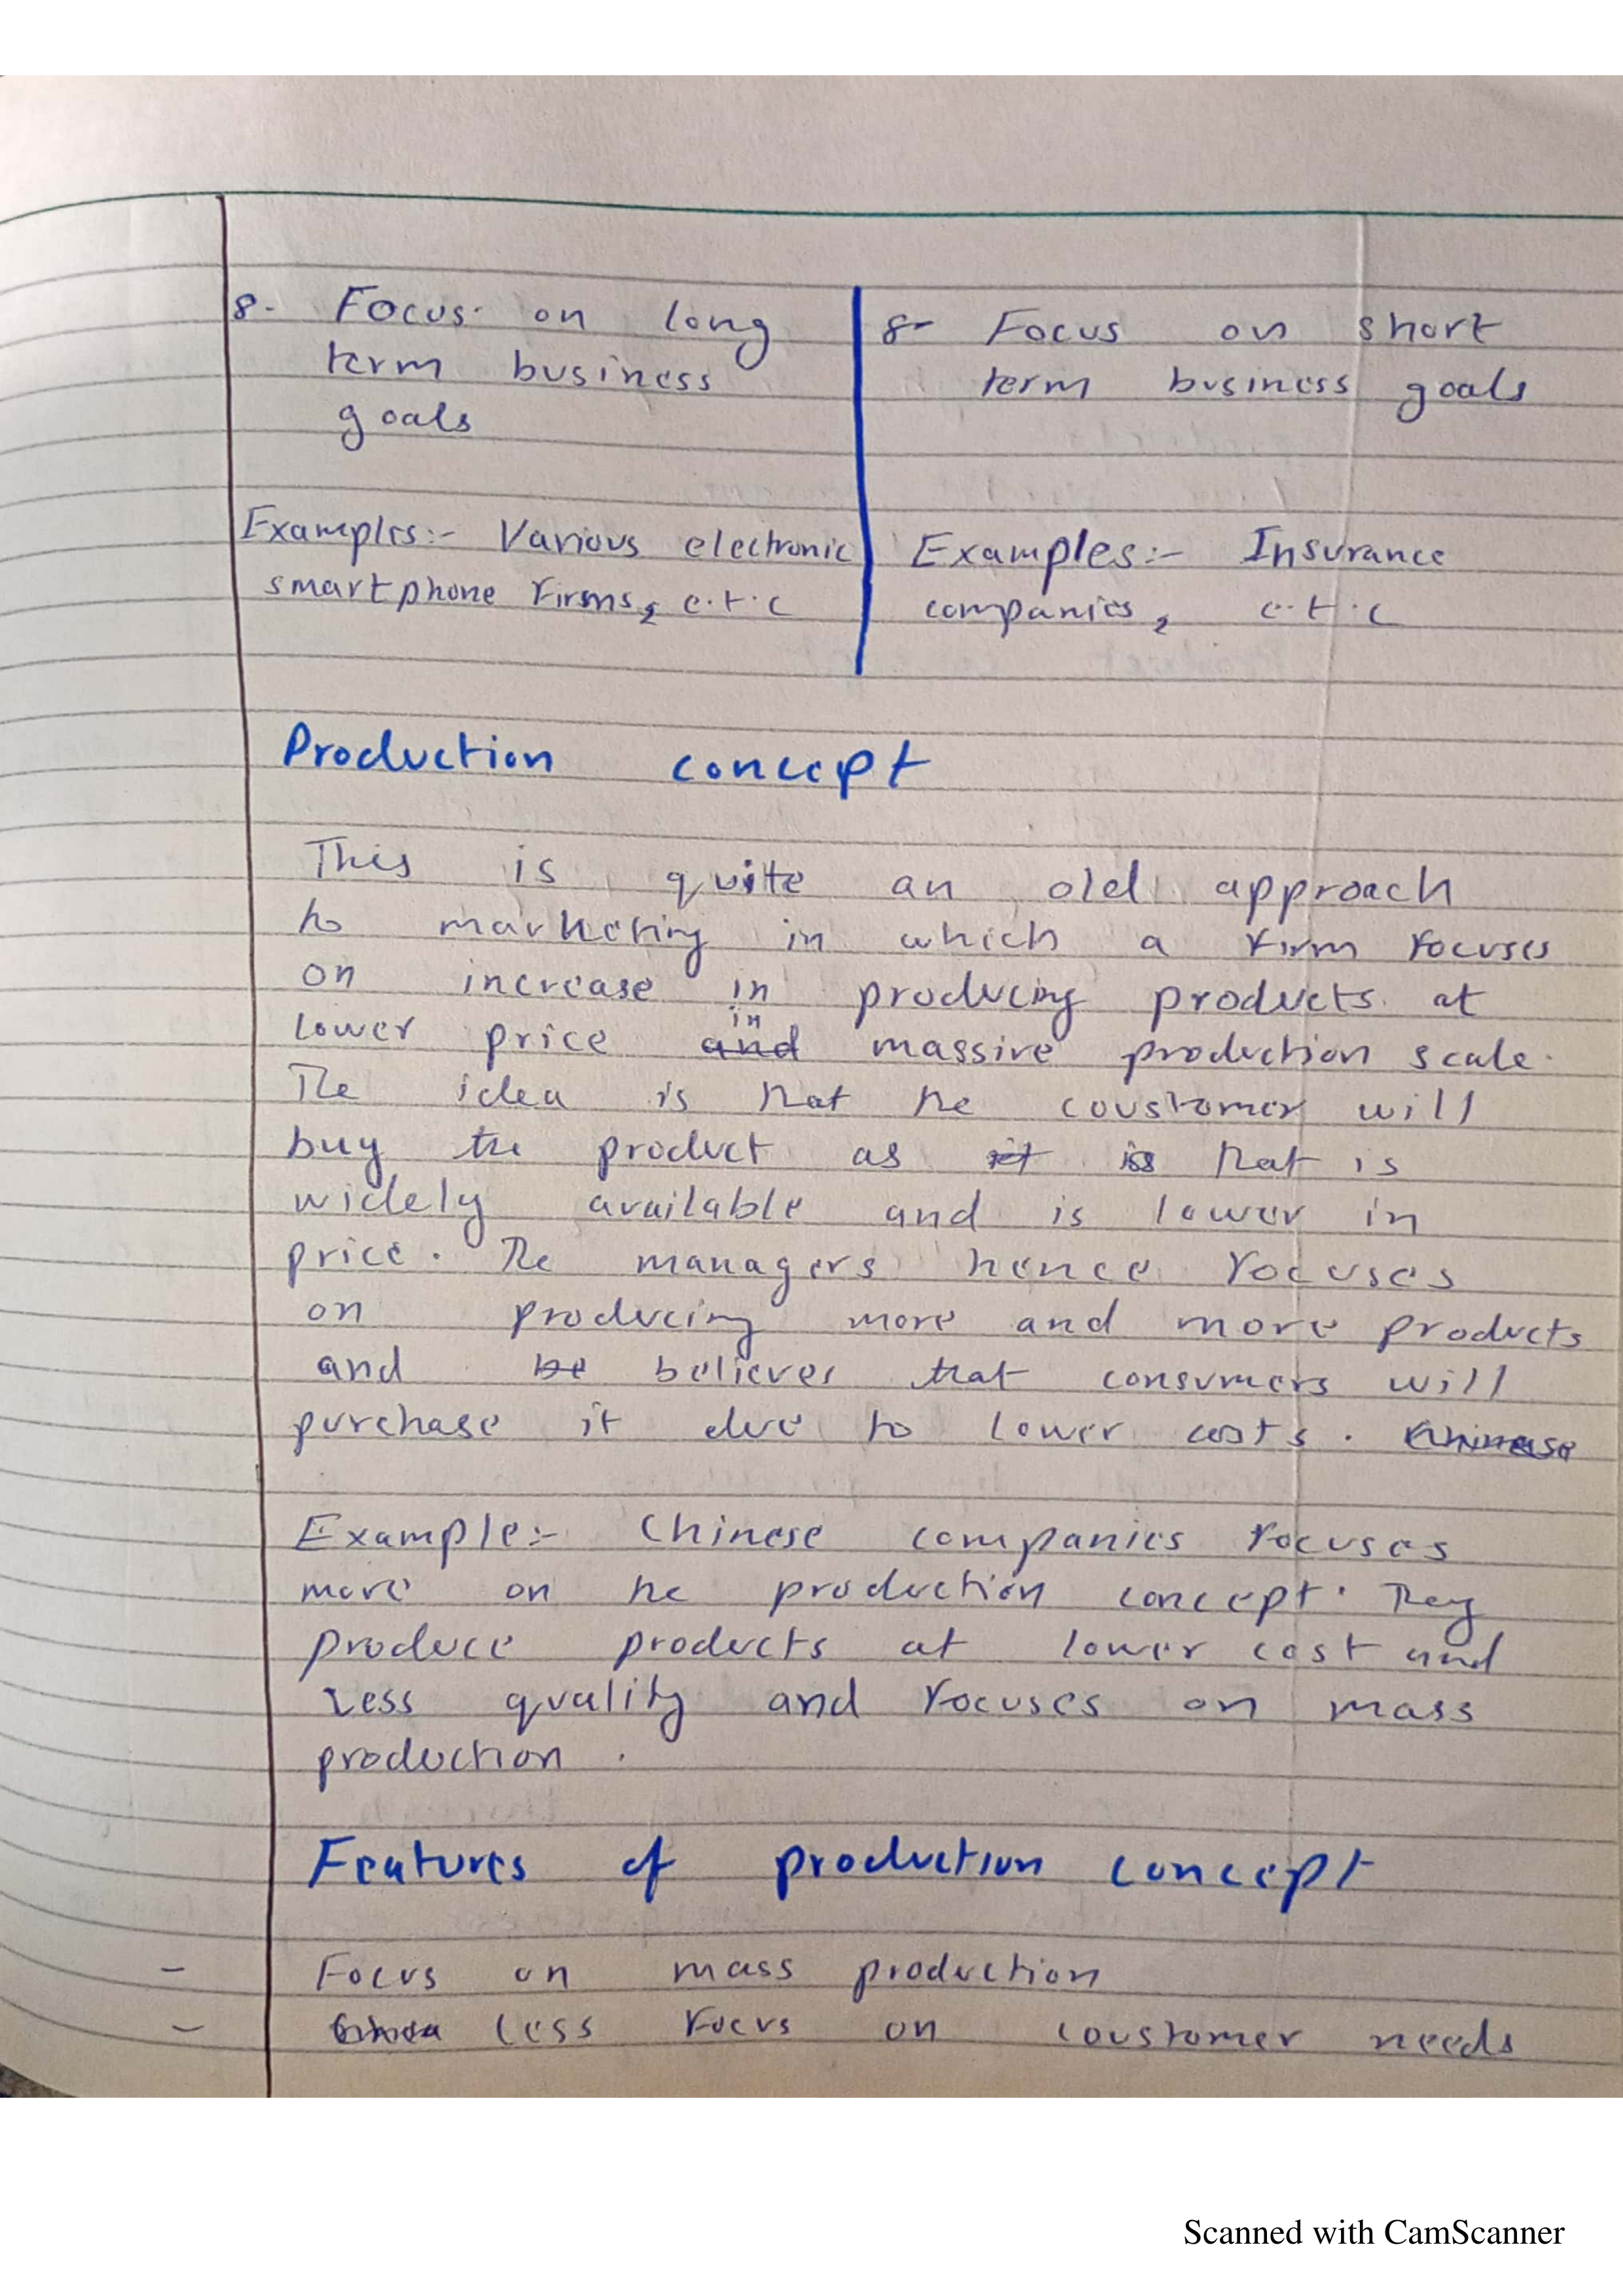 8- Focus on long
term business
goals
Examples:- Various electronic
smartphone firms, e.t.c
8- Focus on short
term business goals
Examples:- Insurance
companies, e.t.c
Production concept
This is quite an old approach
to marketing in which a firm focuses
on increase in producing products at
lower price and in massive production scale.
The idea is that the coustomer will
buy the product as it is that is
widely available and is lower in
price. The managers hence focuses
on producing more and more products
and be believes that consumers will
purchase it due to lower costs. Chinese
Example:- Chinese companies focuses
more on the production concept. They
produce products at lower cost and
less quality and focuses on mass
production.
Features of production concept
- Focus on mass production
- Less focus on coustomer needs
Scanned with CamScanner